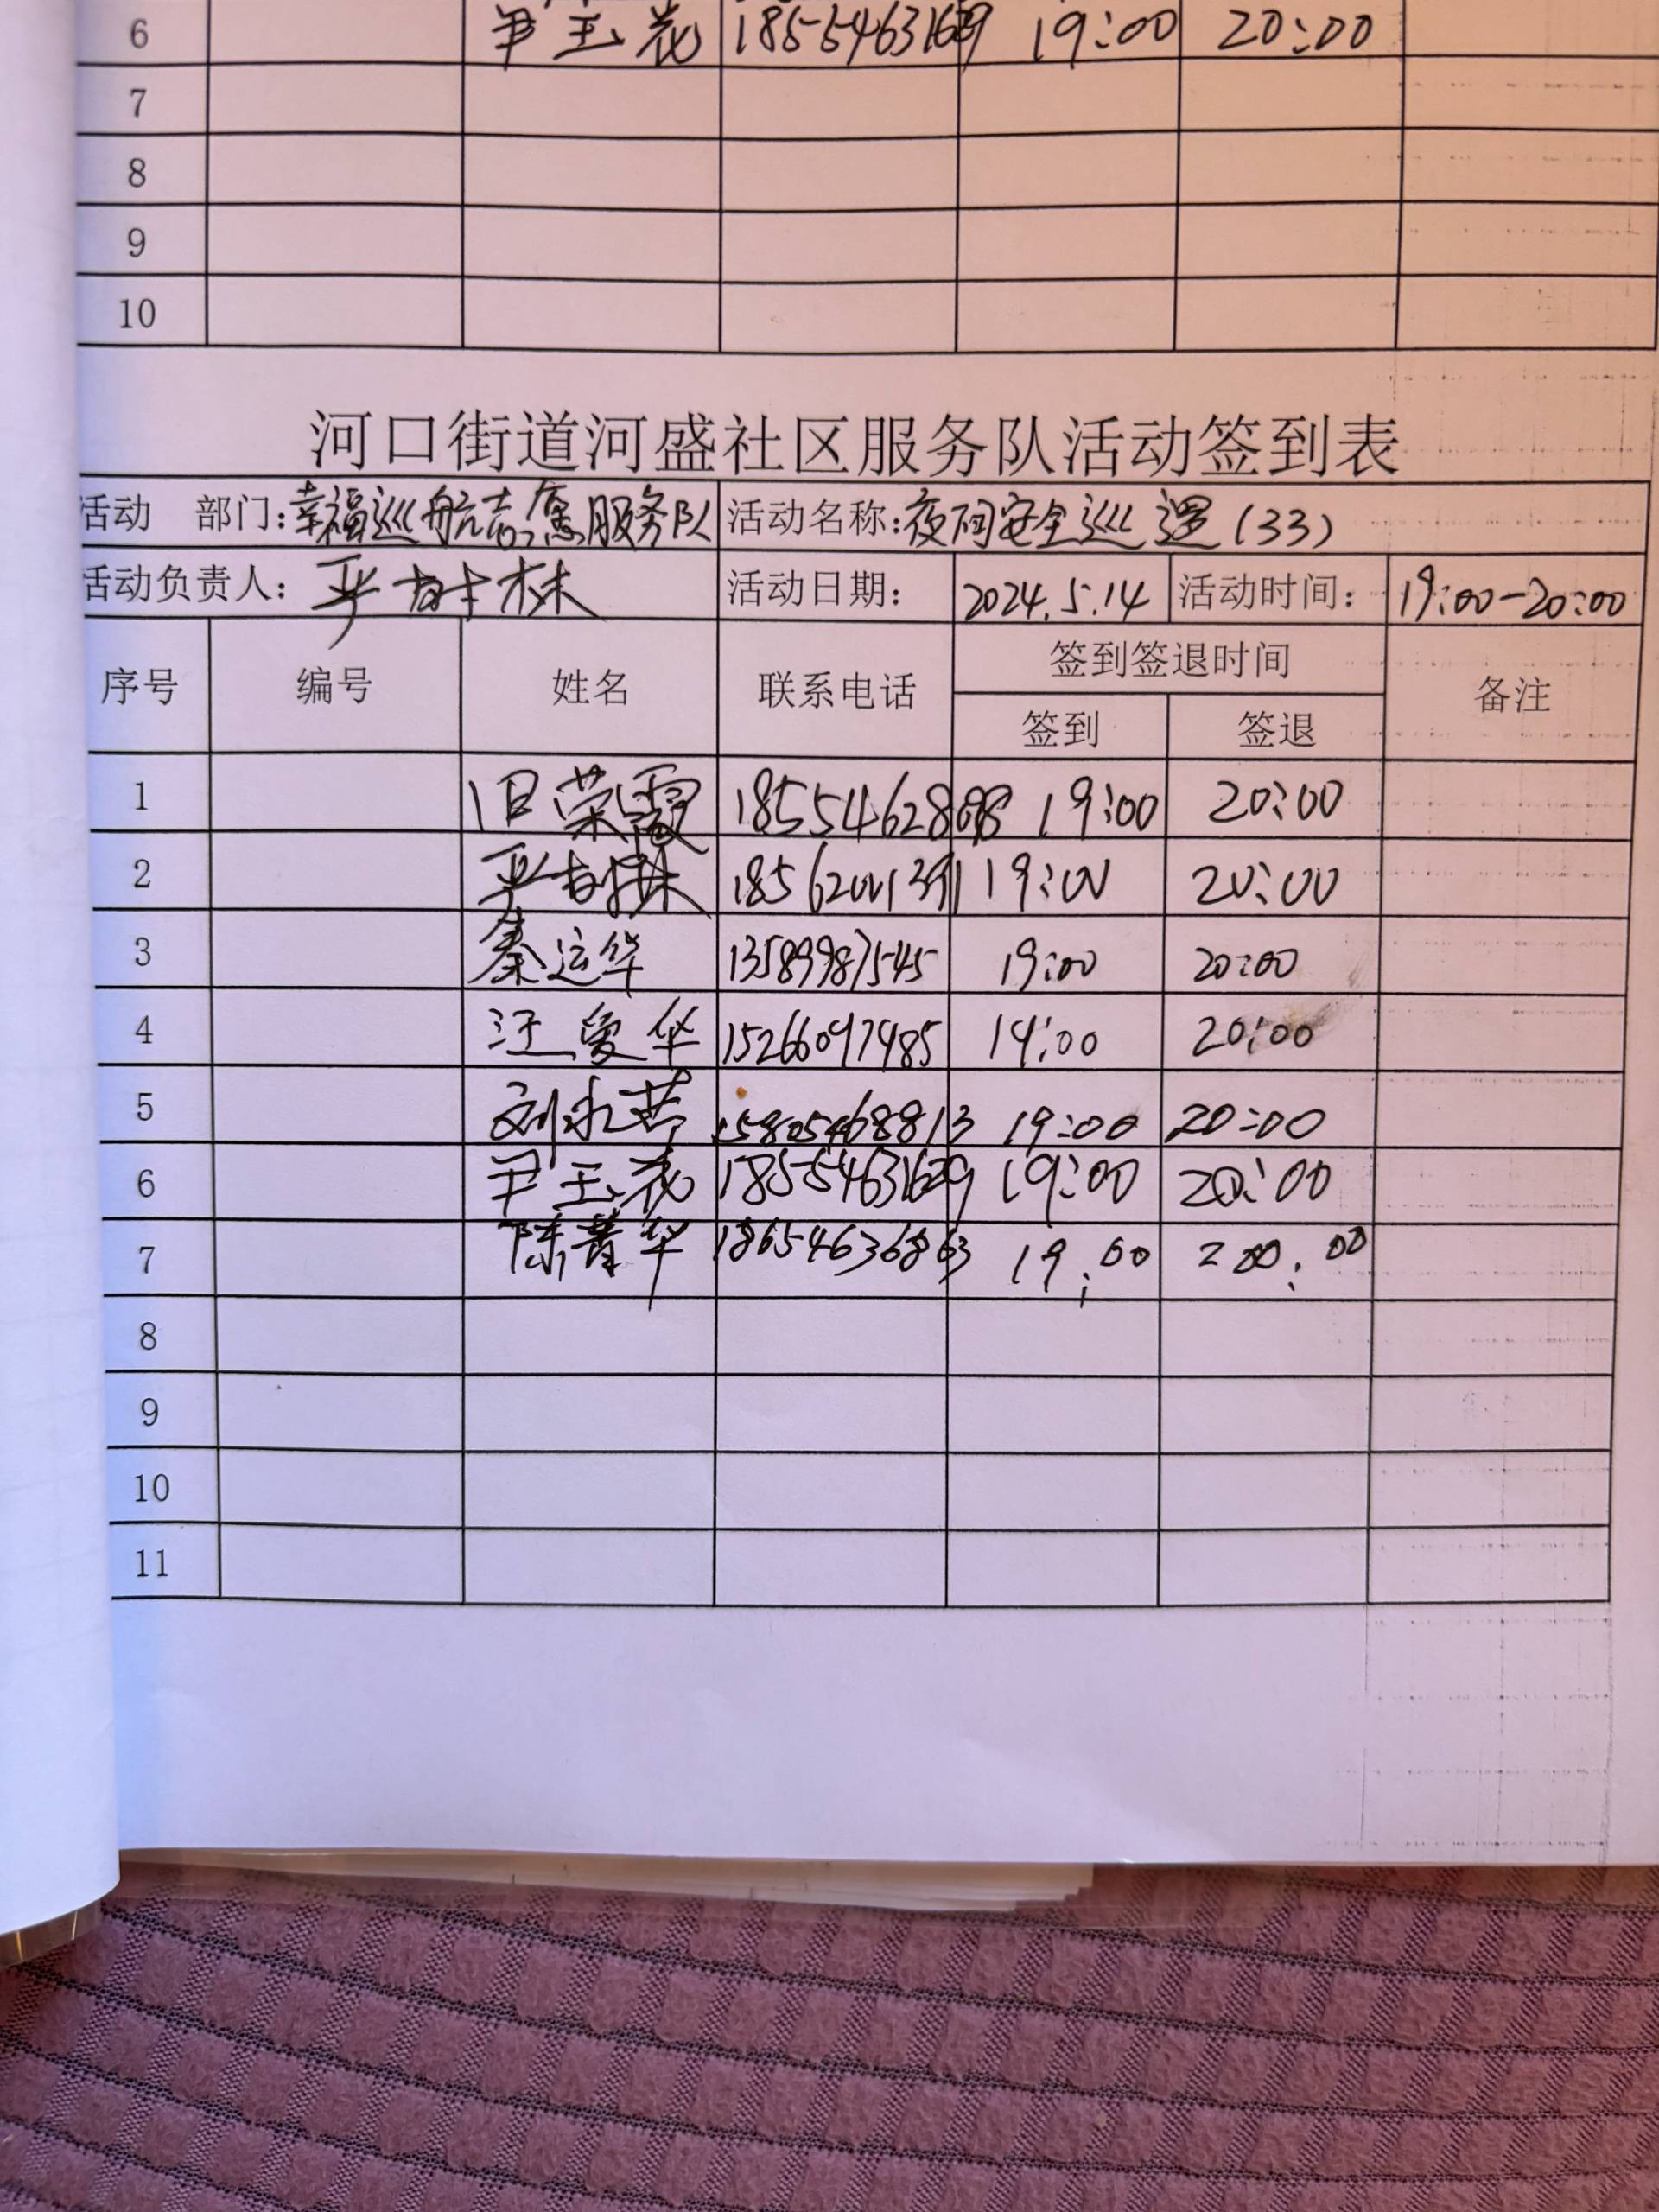 6 尹玉花 18554631629 19:00 20:00
7
8
9
10
河口街道河盛社区服务队活动签到表
活动 部门: 幸福巡航志愿服务队 活动名称: 夜间安全巡逻(33)
活动负责人: 严树林 活动日期: 2024.5.14 活动时间: 19:00-20:00
序号 编号 姓名 联系电话 签到签退时间 备注
签到 签退
1 旧荣霞 19:00 20:00
2 严树林 19:00 20:00
3 秦运华 13589987545 19:00 20:00
4 汪爱华 15266097485 19:00 20:00
5 15805468813 19:00 20:00
6 尹玉花 18554631629 19:00 20:00
7 陈菁华 18654636863 19:00 200:00
8
9
10
11